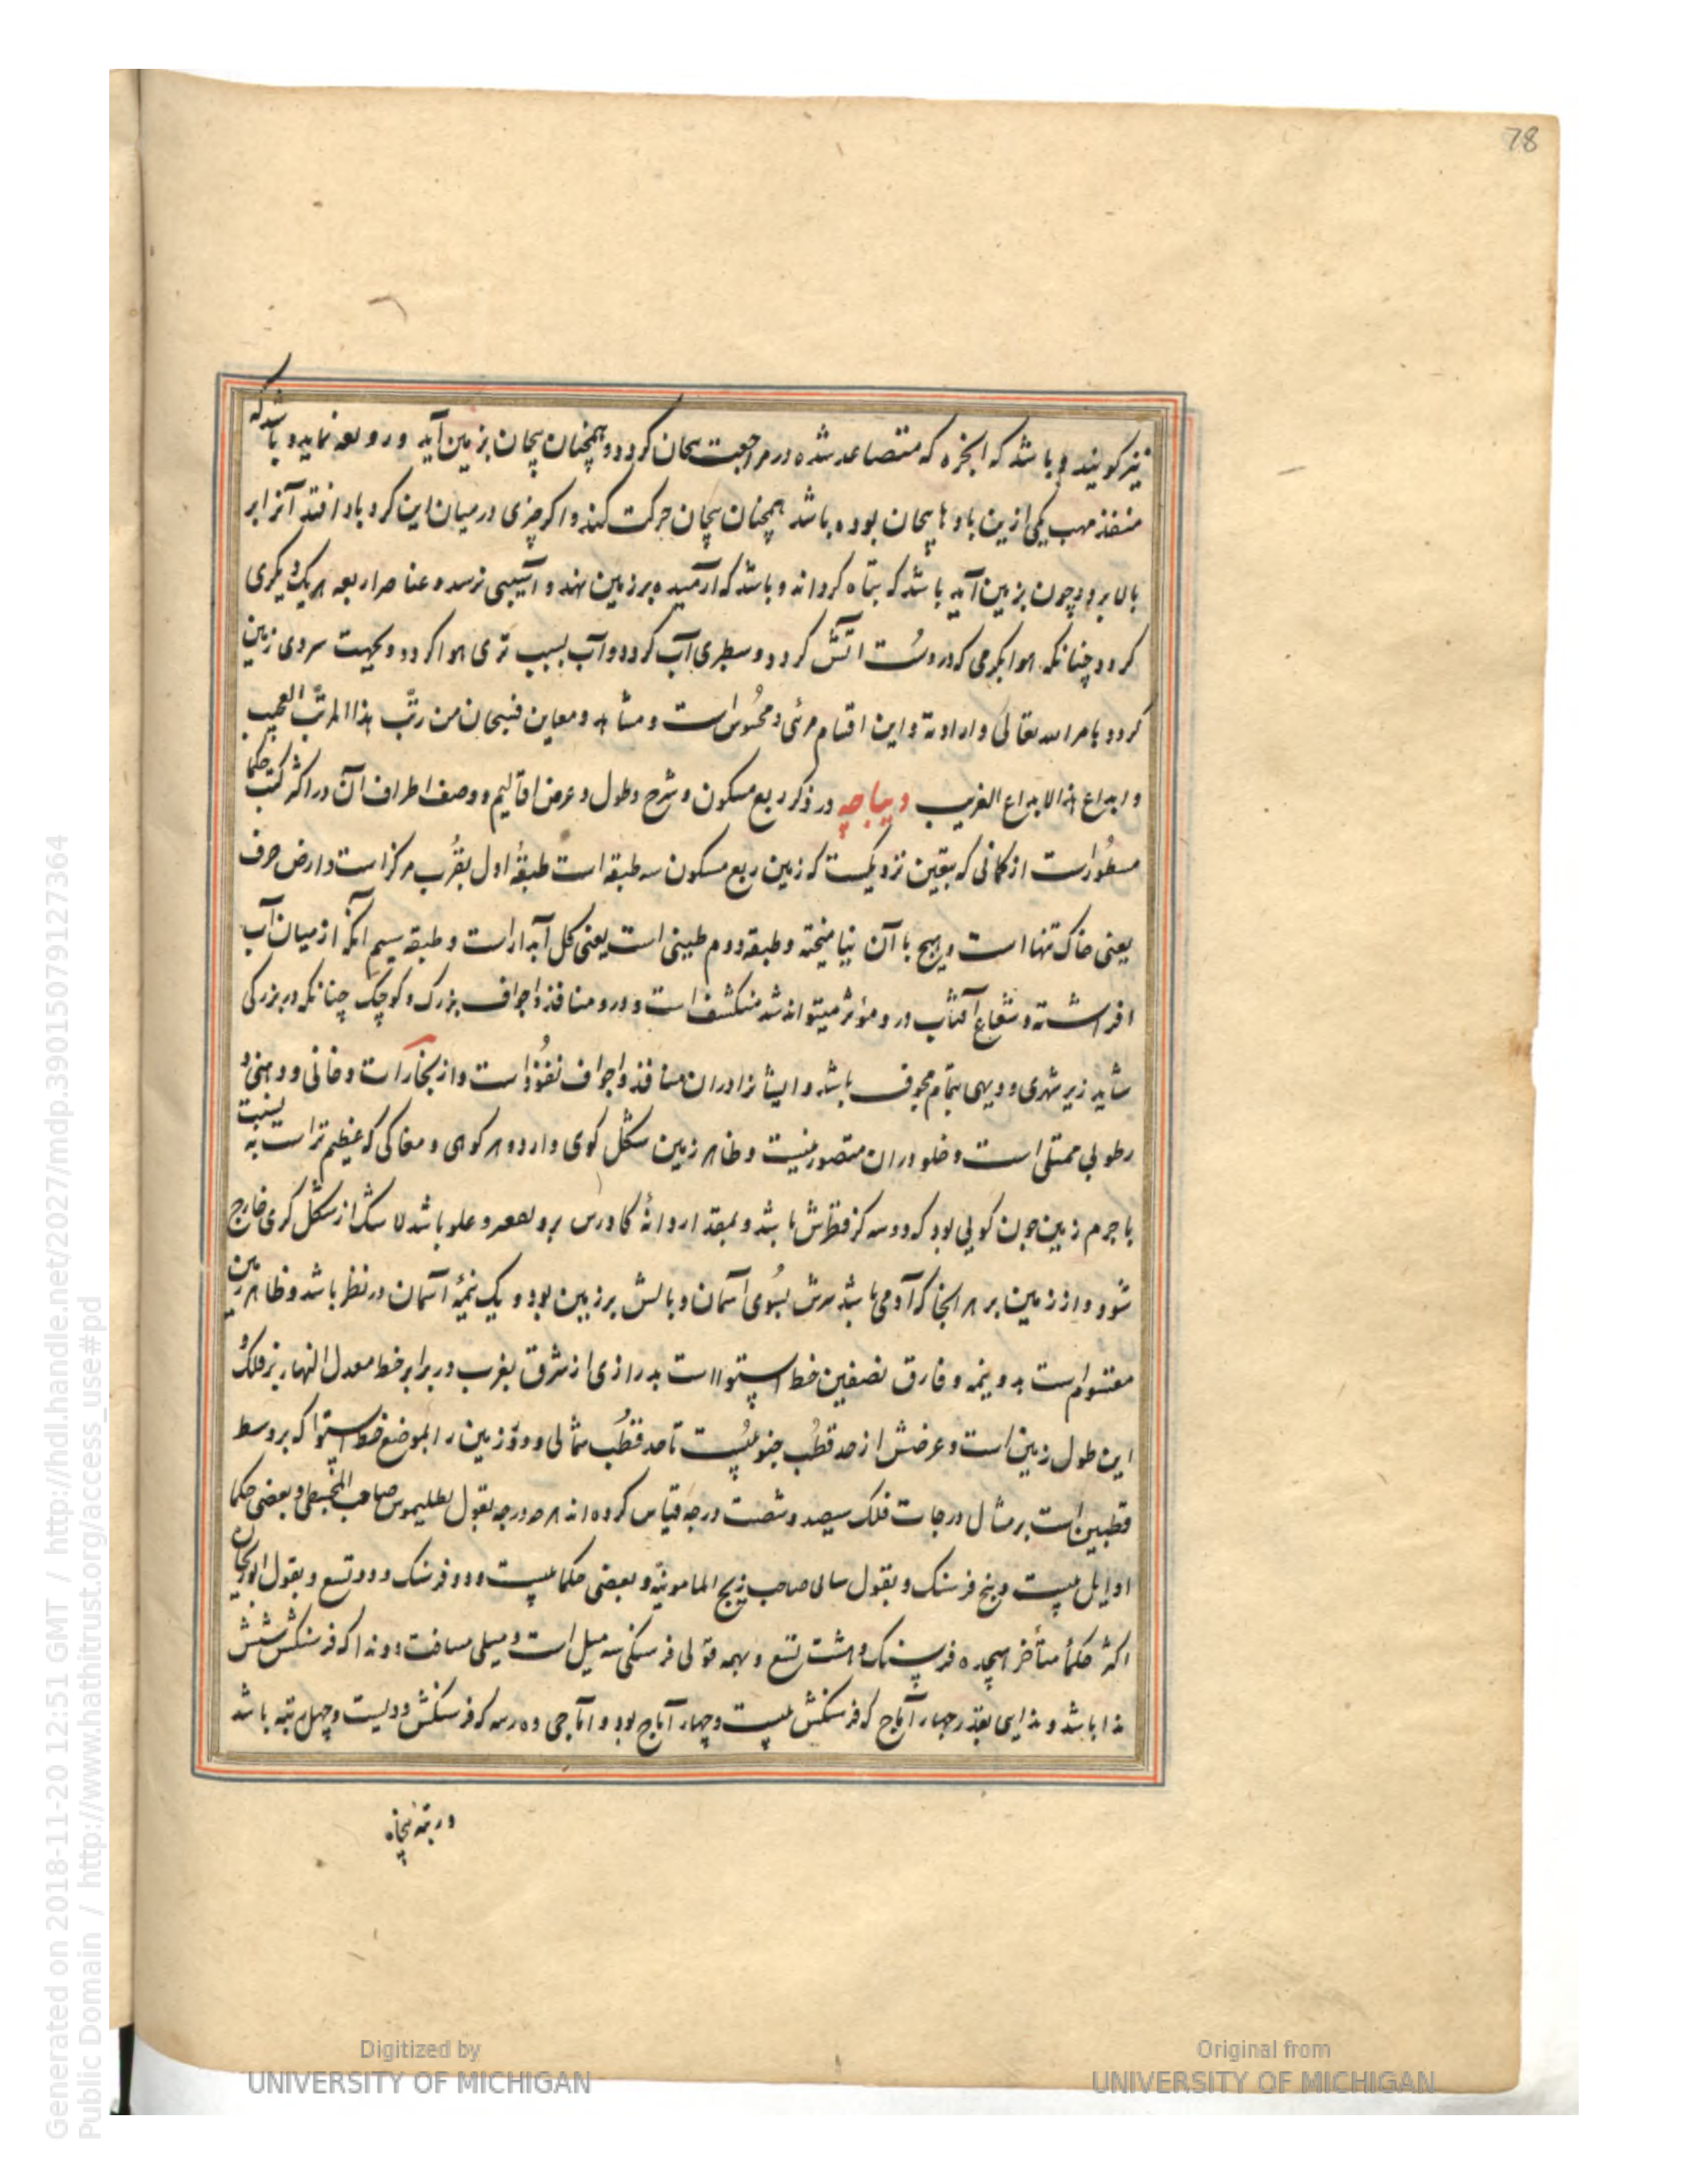 78
نیز کویند و باشد که ابخره که متصاعد شده در مراجعت پیچان کردد و همچنان پیچان بزمین آید و رو بعه نماید و باشد که
منفذ مهب یکی ازین بادها پیچان بوده باشد همچنان پیچان حرکت کند و اکر چیزی در میان این کرد باد افتد آنرا بر
بالا برد و چون بزمین آید باشد که بتاه کرداند و باشد که آرمیده بر زمین نهد و آسیبی نرسد و عناصر اربعه هر یک دیکری
کردد چنانکه هوا بکرمی که دروست اتش کردد و بسطبری آب کردد و آب بسبب تری هوا کردد و بجهت سردی زمین
کردد بامر الله تعالی و ارادته و این اقسام مرئی و محسوس است و مشاهد و معاین فسبحان من رتب هذا المرتب العجیب
و ابداع هذا الابداع الغریب دیباجه در ذکر ربع مسکون و شرح طول و عرض اقالیم و وصف اطراف آن در اکثر کتب حکما
مسطور است از کمانی که بیقین نزدیکست که زمین ربع مسکون سه طبقه است طبقهٔ اول بقرب مرکز است و ارض صرف
یعنی خاک تنها است و هیچ با آن نیامیخته و طبقه دوم طینی است یعنی کل آبدار است و طبقه سیم آنکه از میان آب
افراشته و شعاع آفتاب درو مؤثر میتواند شد منکشف است و درو منافذ و اجواف بزرک و کوچک چنانکه در بزرکی
شاید زیر شهری و دیهی بتمام مجوف باشد و ایشانرا در ان منافذ و اجواف نفوذ است و از بخارات دخانی و دهنی و
رطوبی ممتلی است و خلو در ان متصور نیست و ظاهر زمین شکل کوی دارد و هر کوهی و مغاکی که عظیم تر است به نسبت
با جرم زمین چون کویی بود که دو سه کز قطرش باشد و بمقدار دانهٔ کاورس برو قعر و علو باشد لا شک از شکل کری خارج
شود و از زمین بر هر انجا که آدمی باشد سرش بسوی آسمان و بالش بر زمین بود و یک نیمهٔ آسمان در نظر باشد و ظاهر زمین
مقسوم است بدو نیمه و فارق نصفین خط استوا است بدرازی از شرق بغرب در برابر خط معدل النهار بر فلک و
این طول زمین است و عرضش از حد قطب جنوبیست تا حد قطب شمالی و دور زمین را بموضع خط استوا که بر وسط
قطبین است بر مثال درجات فلک سیصد و شصت درجه قیاس کرده اند هر درجه بقول بطلیموس صاحب المجسطی و بعضی حکما
اوایل بیست و پنج فرسنک و بقول صاحب زیج المامونیه و بعضی حکما بیست و دو فرسنک و دو تسع و بقول ابوریحان
اکثر حکمأ متأخر هیجده فرسنک و هشت تسع و بهمه قولی فرسنکی سه میل است و میلی مسافت دو ندا که فرسنکش شش
ندا باشد و ندایی بقدر چهار آماج که فرسنکش بیست و چهار آماج بود و آماجی ده رسه که فرسنکش دویست و چهل رتبه باشد
در تبه پنجاه
Generated on 2018-11-20 12:51 GMT / http://hdl.handle.net/2027/mdp.39015079127364
Public Domain / http://www.hathitrust.org/access_use#pd
Digitized by
UNIVERSITY OF MICHIGAN
Original from
UNIVERSITY OF MICHIGAN